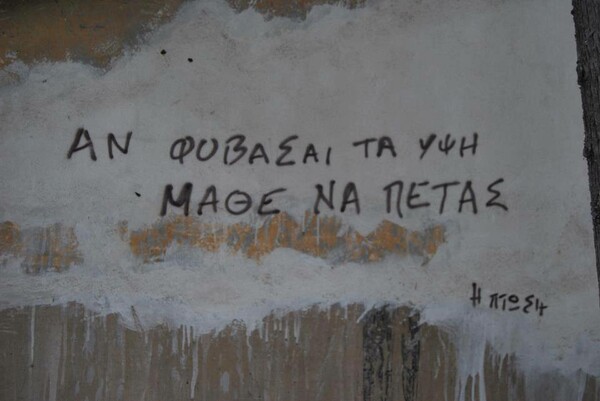 ΑΝ ΦΟΒΑΣΑΙ ΤΑ ΥΨΗ
ΜΑΘΕ ΝΑ ΠΕΤΑΣ
Η ΠΤΩΣΗ